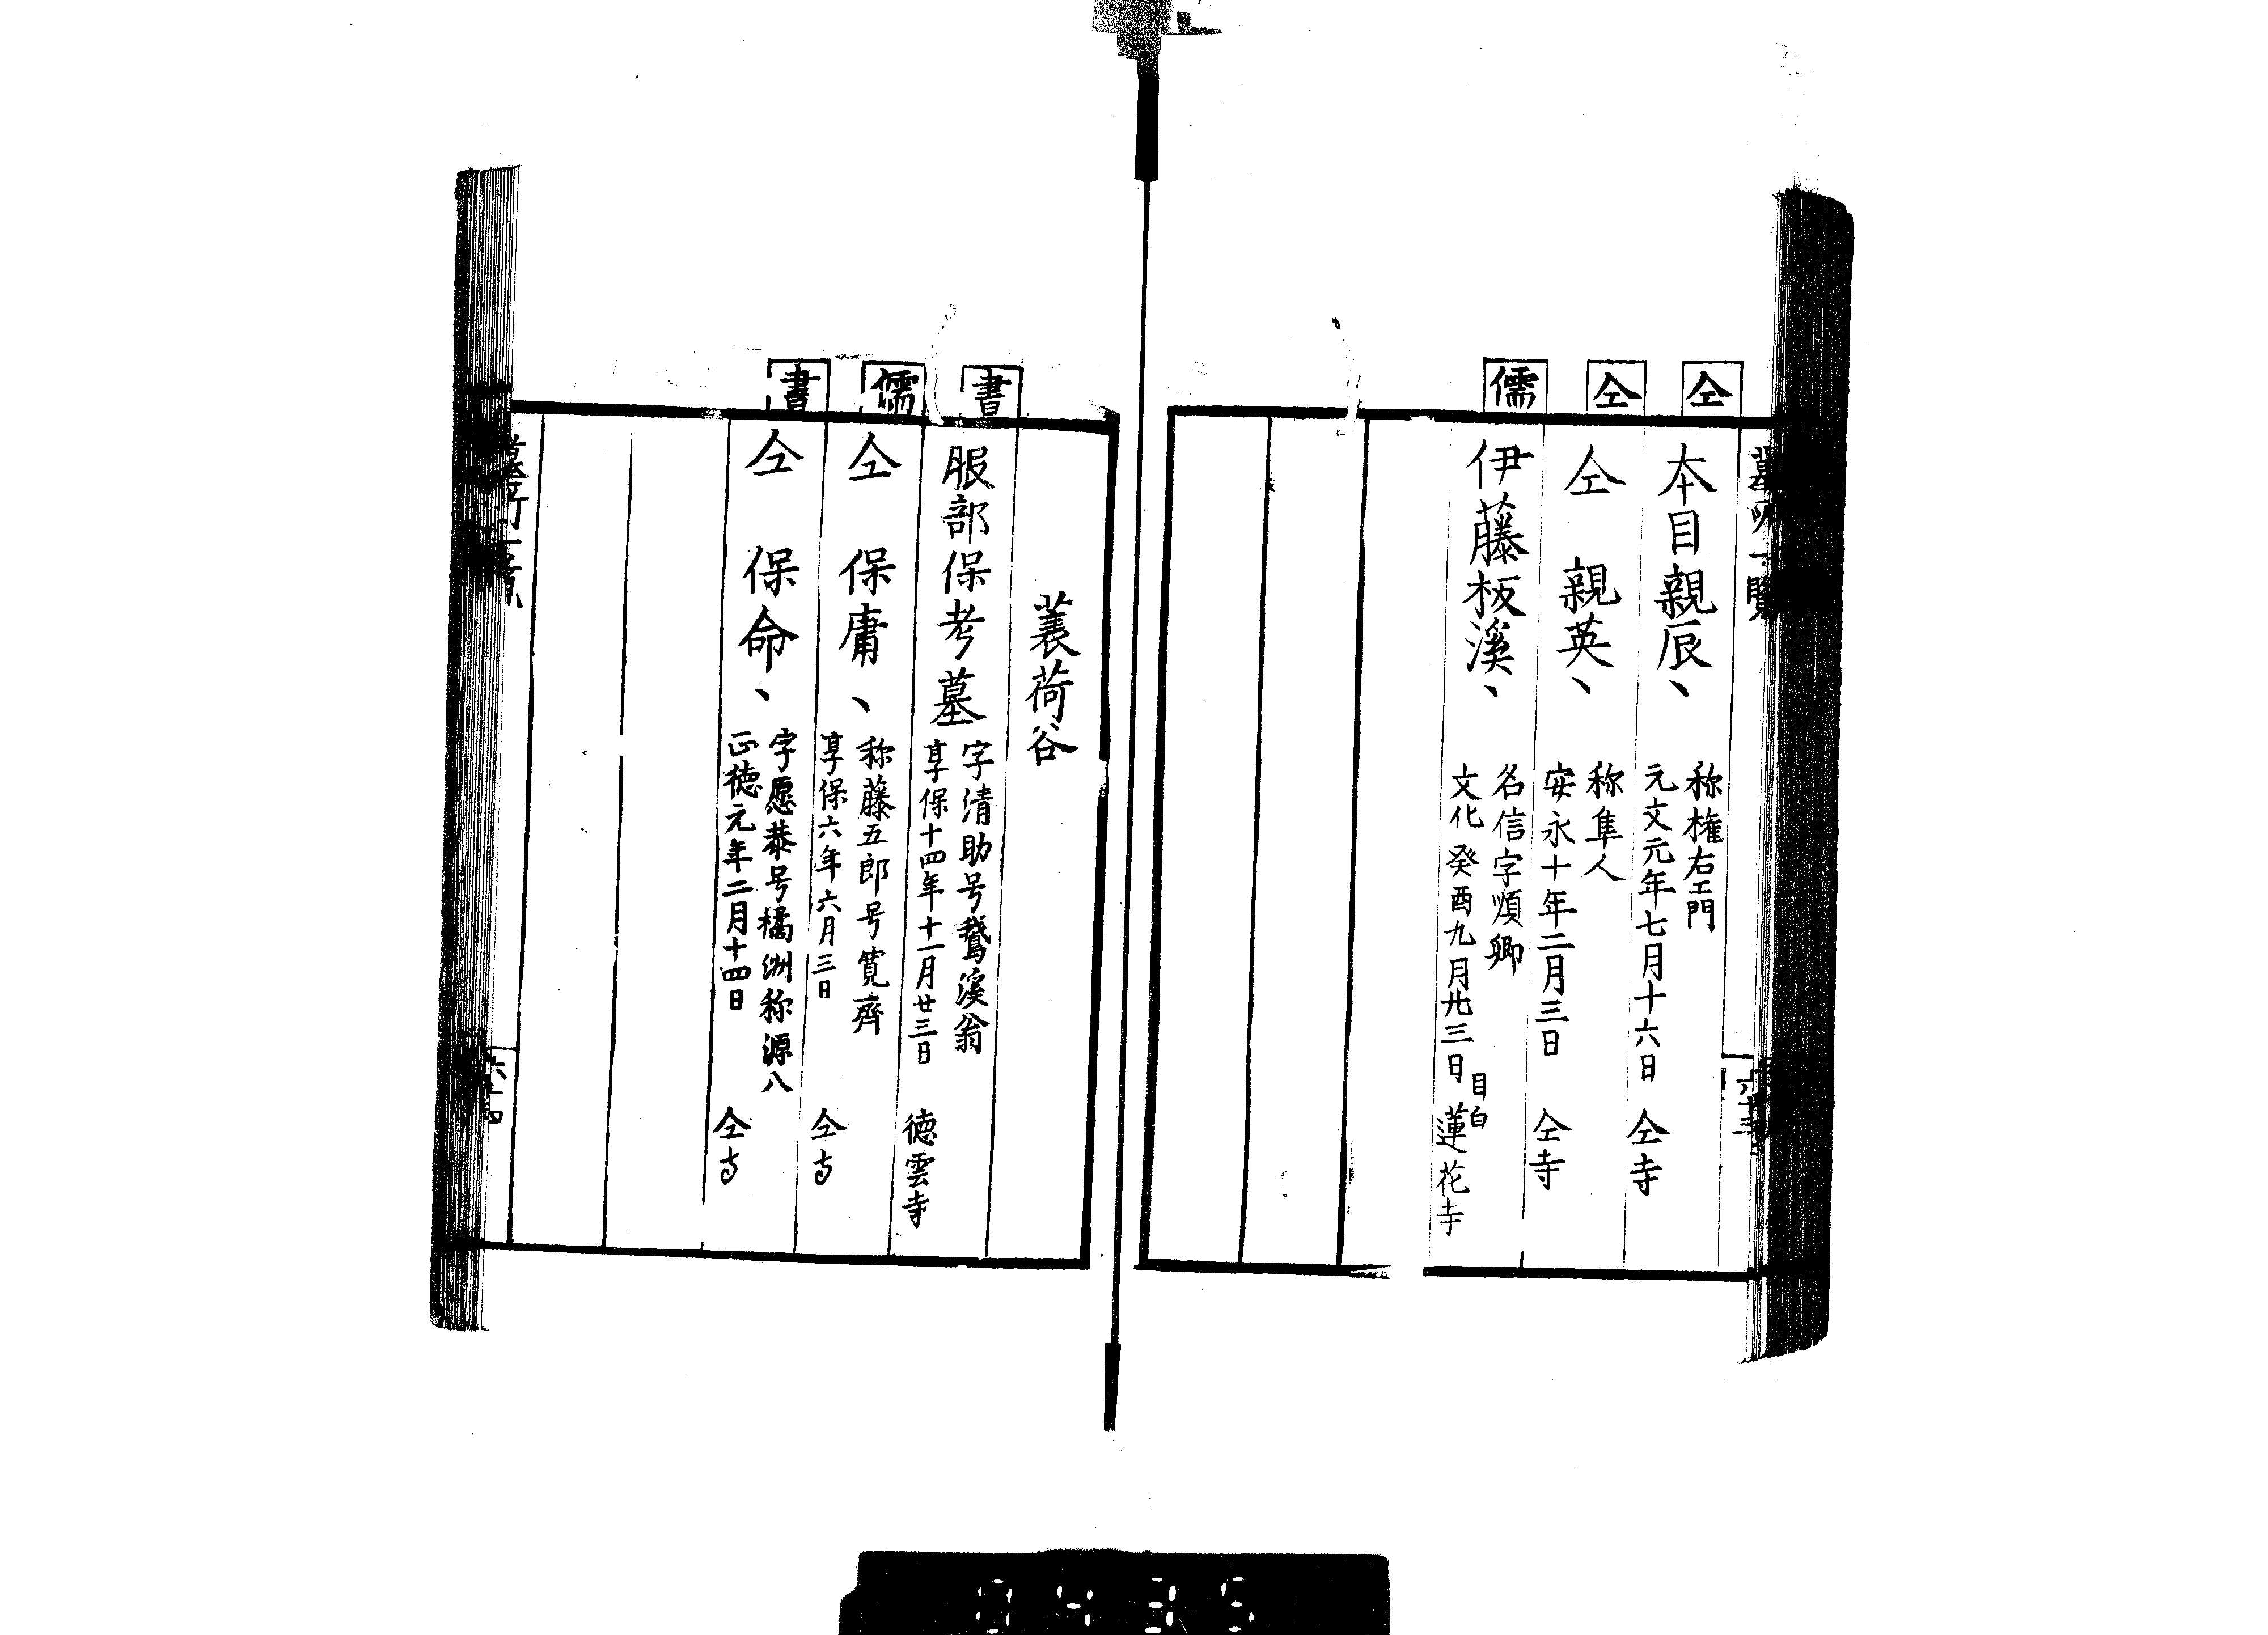 墓所一覧
六十三
仝
本目親辰、
称権右エ門
元文元年七月十六日
仝寺
仝
仝 親英、
称隼人
安永十年二月三日
仝寺
儒
伊藤板溪、
名信字順卿
文化癸酉九月廿三日
目白
蓮花寺
蓑荷谷
書
服部保考墓
字清助号鵞溪翁
享保十四年十一月廿三日
徳雲寺
儒
仝 保庸、
称藤五郎号寛齊
享保六年六月三日
仝寺
書
仝 保命、
字愿恭号橘洲称源八
正徳元年二月十四日
仝寺
六十四